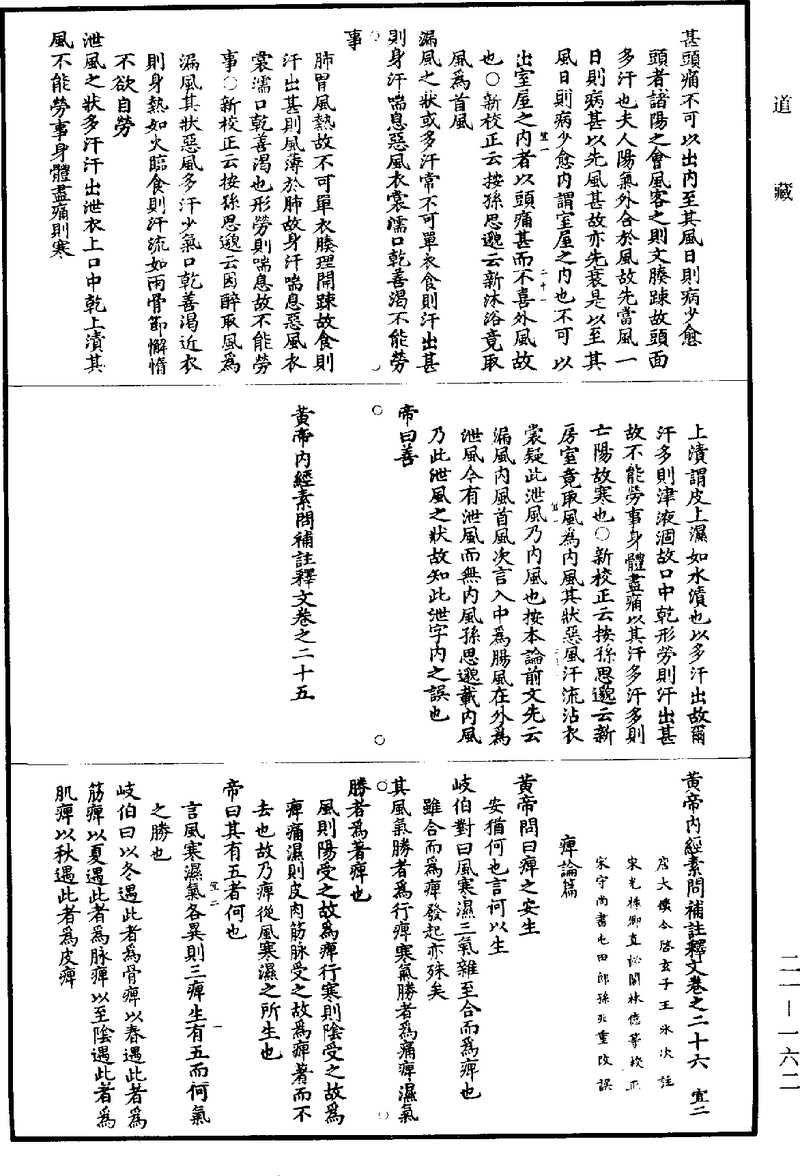 道藏
甚頭痛不可以出內至其風日則病少愈
頭者諸陽之會風客之則文腠踈故頭面
多汗也夫人陽氣外合於風故先當風一
日則病甚以先風甚故亦先衰是以至其
風日則病少愈內謂室屋之內也不可以
出室屋之內者以頭痛甚而不喜外風故
也○新校正云按孫思邈云新沐浴竟取
風為首風
漏風之狀或多汗常不可單衣食則汗出甚
則身汗喘息惡風衣裳濡口乾善渴不能勞
事
肺胃風熱故不可單衣腠理開踈故食則
汗出甚則風薄於肺故身汗喘息惡風衣
裳濡口乾善渴也形勞則喘息故不能勞
事○新校正云按孫思邈云因醉取風為
漏風其狀惡風多汗少氣口乾善渴近衣
則身熱如火臨食則汗流如雨骨節懈惰
不欲自勞
泄風之狀多汗汗出泄衣上口中乾上漬其
風不能勞事身體盡痛則寒
上漬謂皮上濕如水漬也以多汗出故爾
汗多則津液涸故口中乾形勞則汗出甚
故不能勞事身體盡痛以其汗多汗多則
亡陽故寒也○新校正云按孫思邈云新
房室竟取風為內風其狀惡風汗流沾衣
裳疑此泄風乃內風也按本論前文先云
漏風內風首風次言入中為腸風在外為
泄風今有泄風而無內風孫思邈載內風
乃此泄風之狀故知此泄字內之誤也
帝曰善
黃帝內經素問補註釋文卷之二十五
黃帝內經素問補註釋文卷之二十六 宜二
唐太僕令啓玄子王冰次註
宋光祿卿直祕閣林億等校正
宋守尚書屯田郎孫兆重改誤
痺論篇
黃帝問曰痺之安生
安猶何也言何以生
岐伯對曰風寒濕三氣雜至合而為痺也
雖合而為痺發起亦殊矣
其風氣勝者為行痺寒氣勝者為痛痺濕氣
勝者為著痺也
風則陽受之故為痺行寒則陰受之故為
痺痛濕則皮肉筋脉受之故為痺著而不
去也故乃痺從風寒濕之所生也
帝曰其有五者何也
言風寒濕氣各異則三痺生有五而何氣
之勝也
岐伯曰以冬遇此者為骨痺以春遇此者為
筋痺以夏遇此者為脉痺以至陰遇此者為
肌痺以秋遇此者為皮痺
二一—一六二